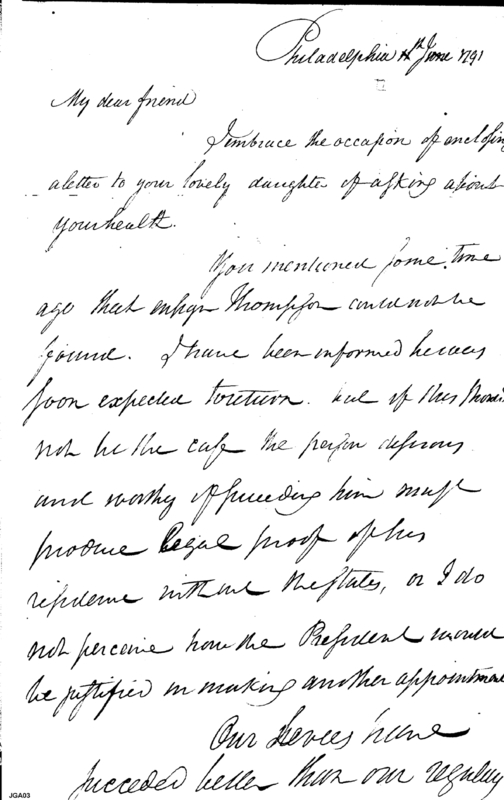 Philadelphia 4th June 1791
My dear friend
I embrace the occasion of enclosing
a letter to your lovely daughter of asking about
your health.
You mentioned some time
ago that ensign Thompson could not be
found. I have been informed he was
soon expected to return. but if this should
not be the case the person desirous
and worthy of succeeding him must
produce legal proof of his
residence without the States, or I do
not perceive how the President would
be justified in making another appointment
Our Levees have
succeeded better than our regular
JGA03